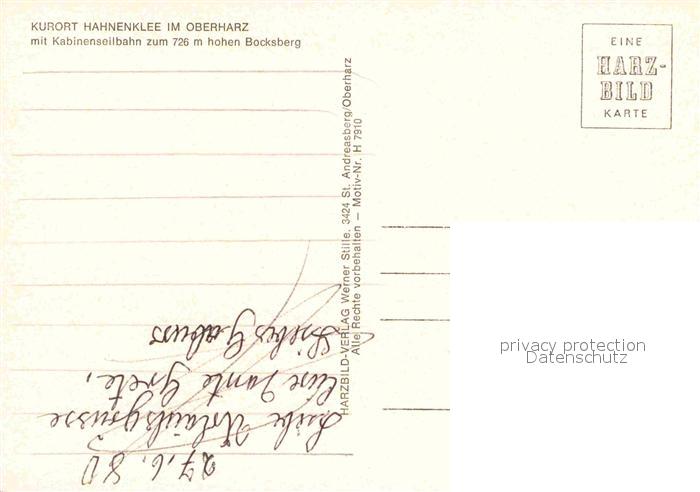 KURORT HAHNENKLEE IM OBERHARZ
mit Kabinenseilbahn zum 726 m hohen Bocksberg
EINE
HARZ-
BILD
KARTE
HARZBILD-VERLAG Werner Stille, 3424 St. Andreasberg/Oberharz
Alle Rechte vorbehalten — Motiv-Nr. H 7910
27.6.80
Liebe Urlaubsgrüsse
eure Tante Grete,
privacy protection
Datenschutz